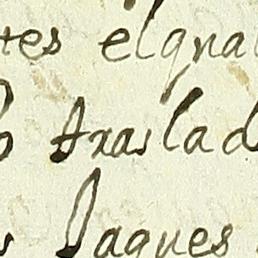 tes elqual
traslad
Jaques